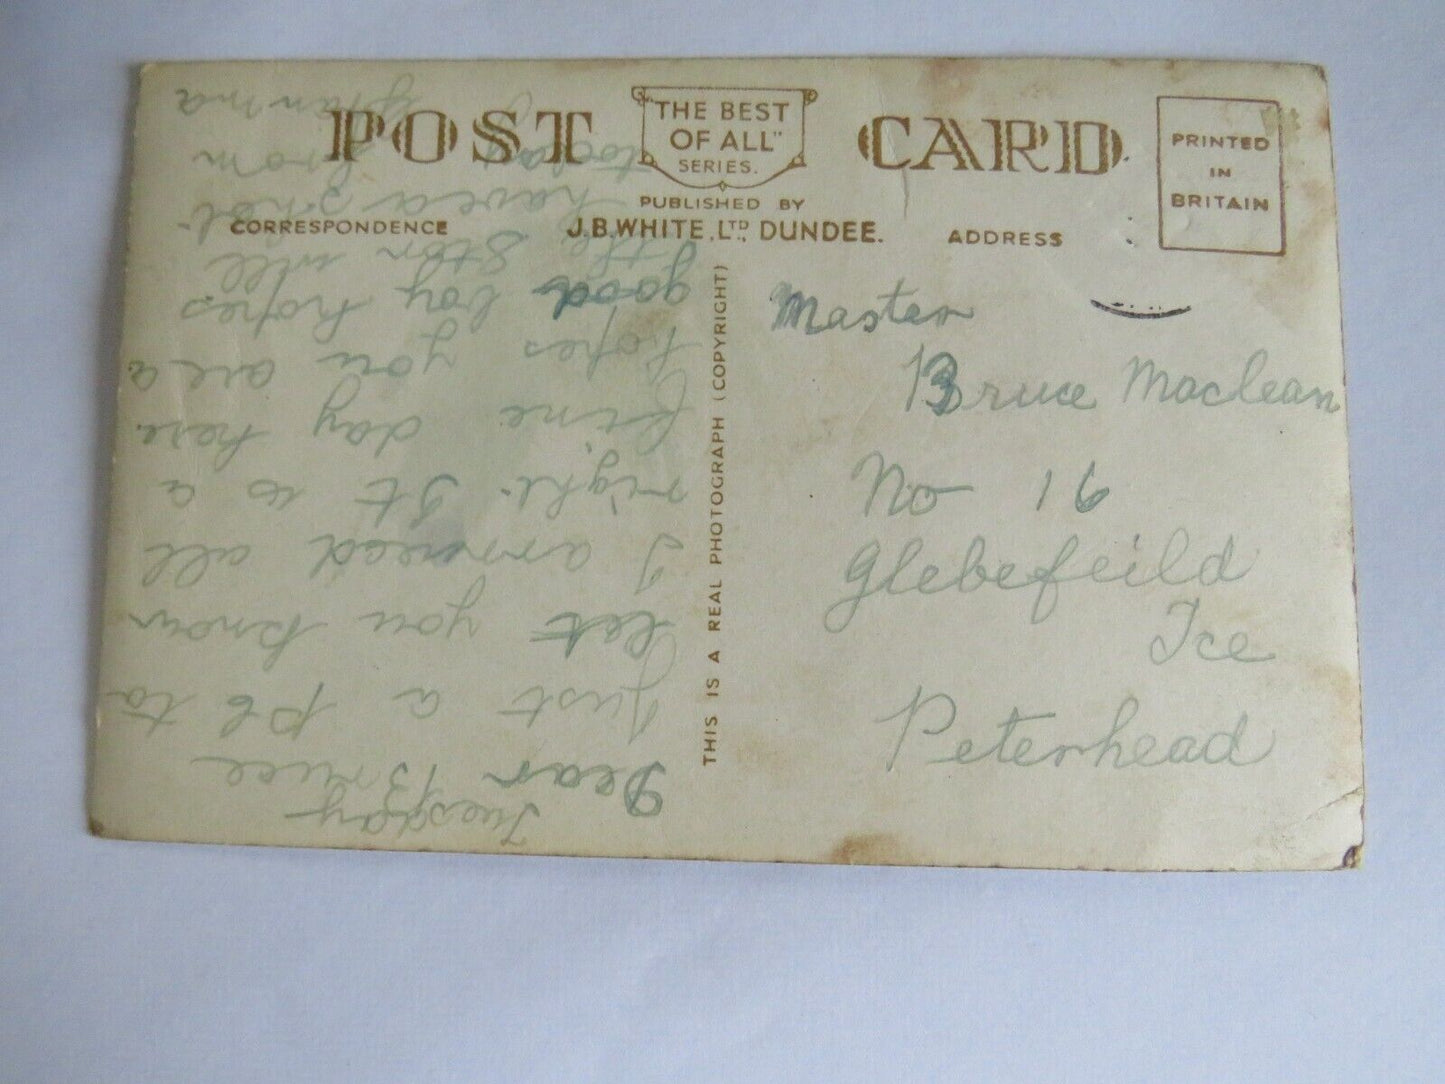 POST CARD
"THE BEST
OF ALL"
SERIES.
PUBLISHED BY
J.B.WHITE, LTD, DUNDEE.
CORRESPONDENCE
ADDRESS
PRINTED
IN
BRITAIN
THIS IS A REAL PHOTOGRAPH (COPYRIGHT)
Master
Bruce Maclean
No 16
Glebefeild
Tce
Peterhead
Tuesday
Dear Bruce
Just a pb to
let you know
I arrived all
right. It is a
fine day here
hopes you are a
good boy hopes
the will
have a
today from
granma